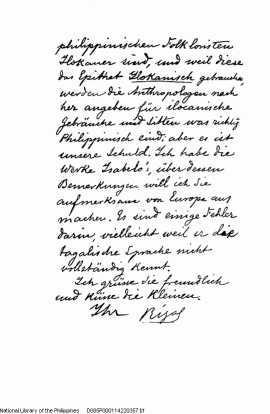 philippinischen Folkloristen
Ilokaner sind, und weil diese
das Epithet Ilokanisch gebrauchen
werden die Anthropologen nach
her angeben für ilocanische
Gebräuche und Sitten was richtig
Philippinisch sind; aber es ist
unsere Schuld. Ich habe die
Werke Isabelo's, über dessen
Bemerkungen will ich Sie
aufmerksam von Europa aus
machen. Es sind einige Fehler
darin, vielleicht weil er die
tagalische Sprache nicht
vollständig kennt.
Ich grüsse Sie freundlich
und küsse die Kleinen.
Ihr Rizal
National Library of the Philippines